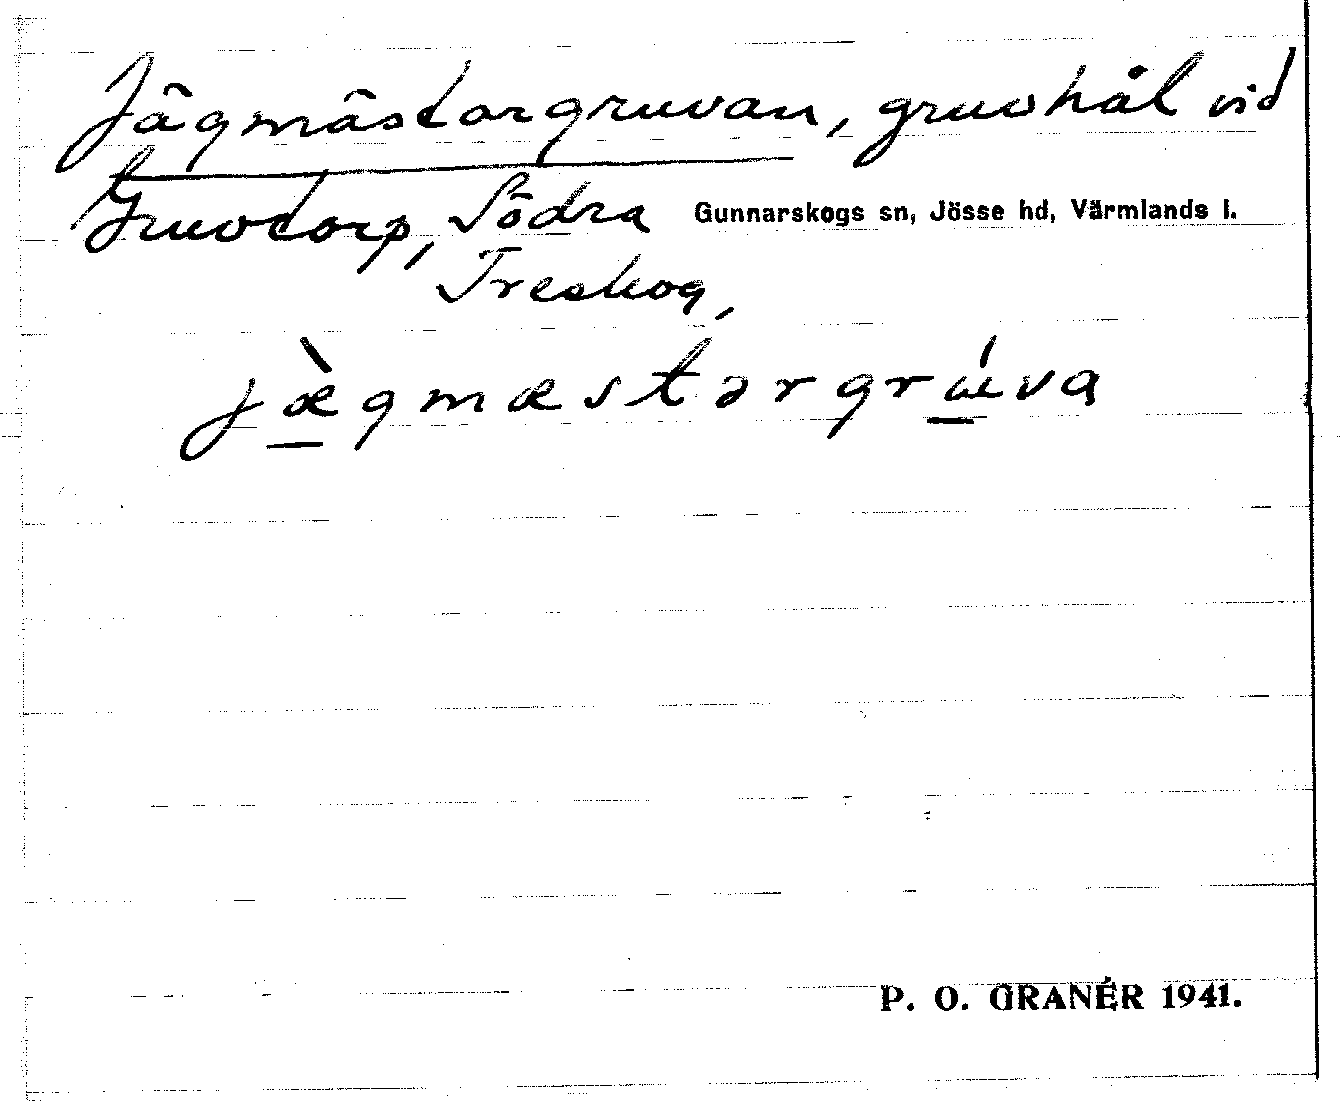 Jägmästargruvan, gruvhål vid
Gruvtorp, Södra Gunnarskogs sn, Jösse hd, Värmlands l.
Treskog,
jæ̀gmæstərgrúva
P. O. GRANÉR 1941.